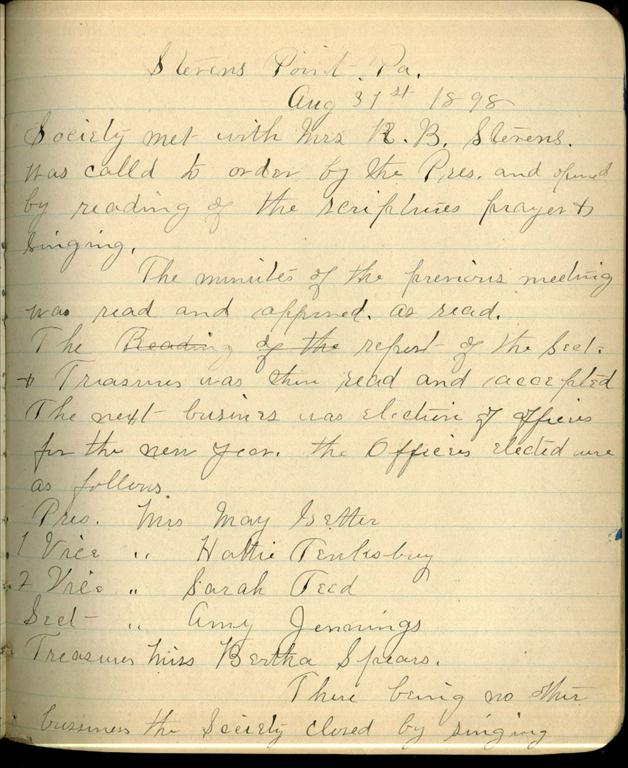 Stevens Point. Pa.
Aug 31st 1898
Society met with Mrs R. B. Stevens.
was calld to order by the Pres. and opened
by reading of the scriptures prayer &
singing.
The minutes of the previous meeting
was read and approved. as read.
The Reading of the report of the Sect.
& Treasurer was then read and accepted
The next business was Election of officers
for the new year. the Officers elected were
as follows.
Pres. Mrs May Getter
1 Vice " Hattie Tewksbury
2 Vice " Sarah Teed
Sect - " Amy Jennings
Treasurer Miss Bertha Spears.
There being no other
bussiness the Society closed by singing